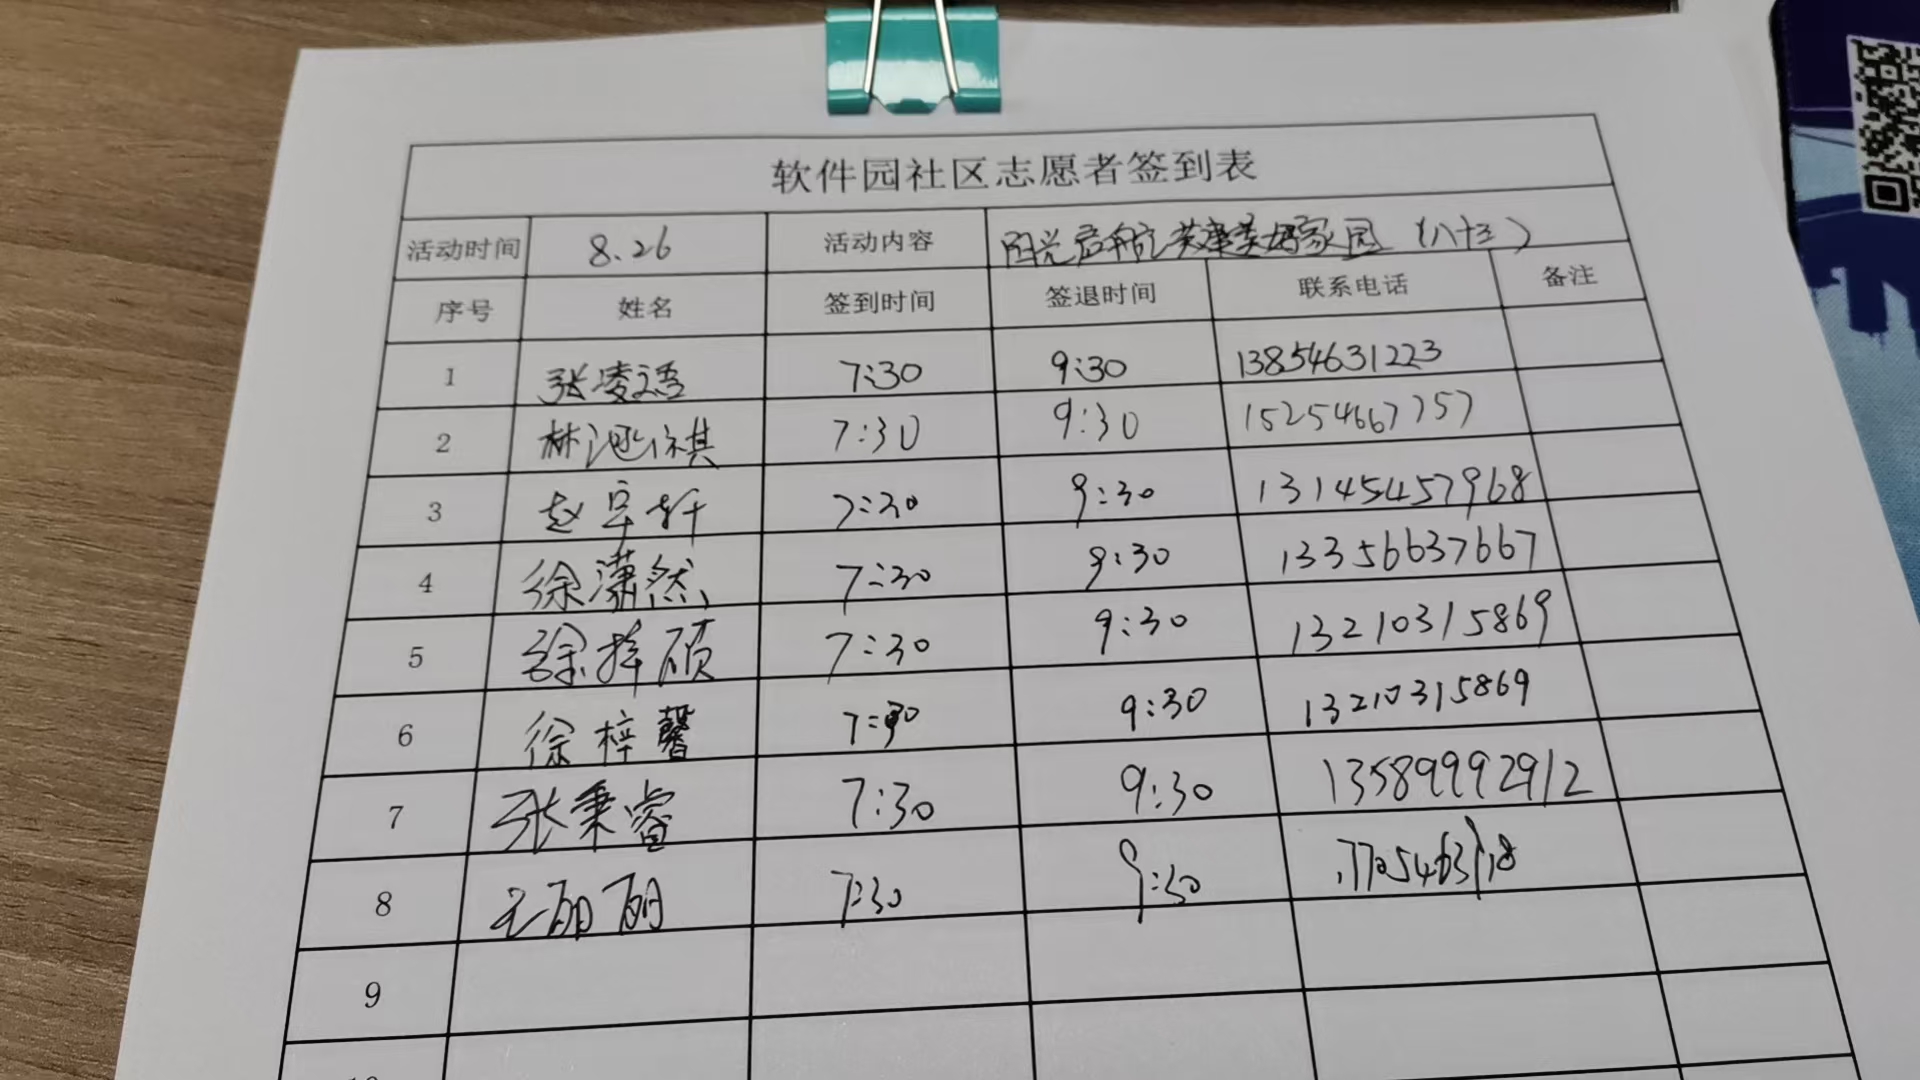 软件园社区志愿者签到表
活动时间 8.26 活动内容 阳光启航 共建美好家园（八十三）
序号 姓名 签到时间 签退时间 联系电话 备注
1 张凌语 7:30 9:30 13854631223
2 林 祺 7:30 9:30 15254667757
3 赵宇轩 7:30 9:30 131454457968
4 徐潇然 7:30 9:30 13356637667
5 徐 硕 7:30 9:30 13210315869
6 徐梓馨 7:30 9:30 13210315869
7 张秉睿 7:30 9:30 13589992912
8 王丽丽 7:30 9:30
9